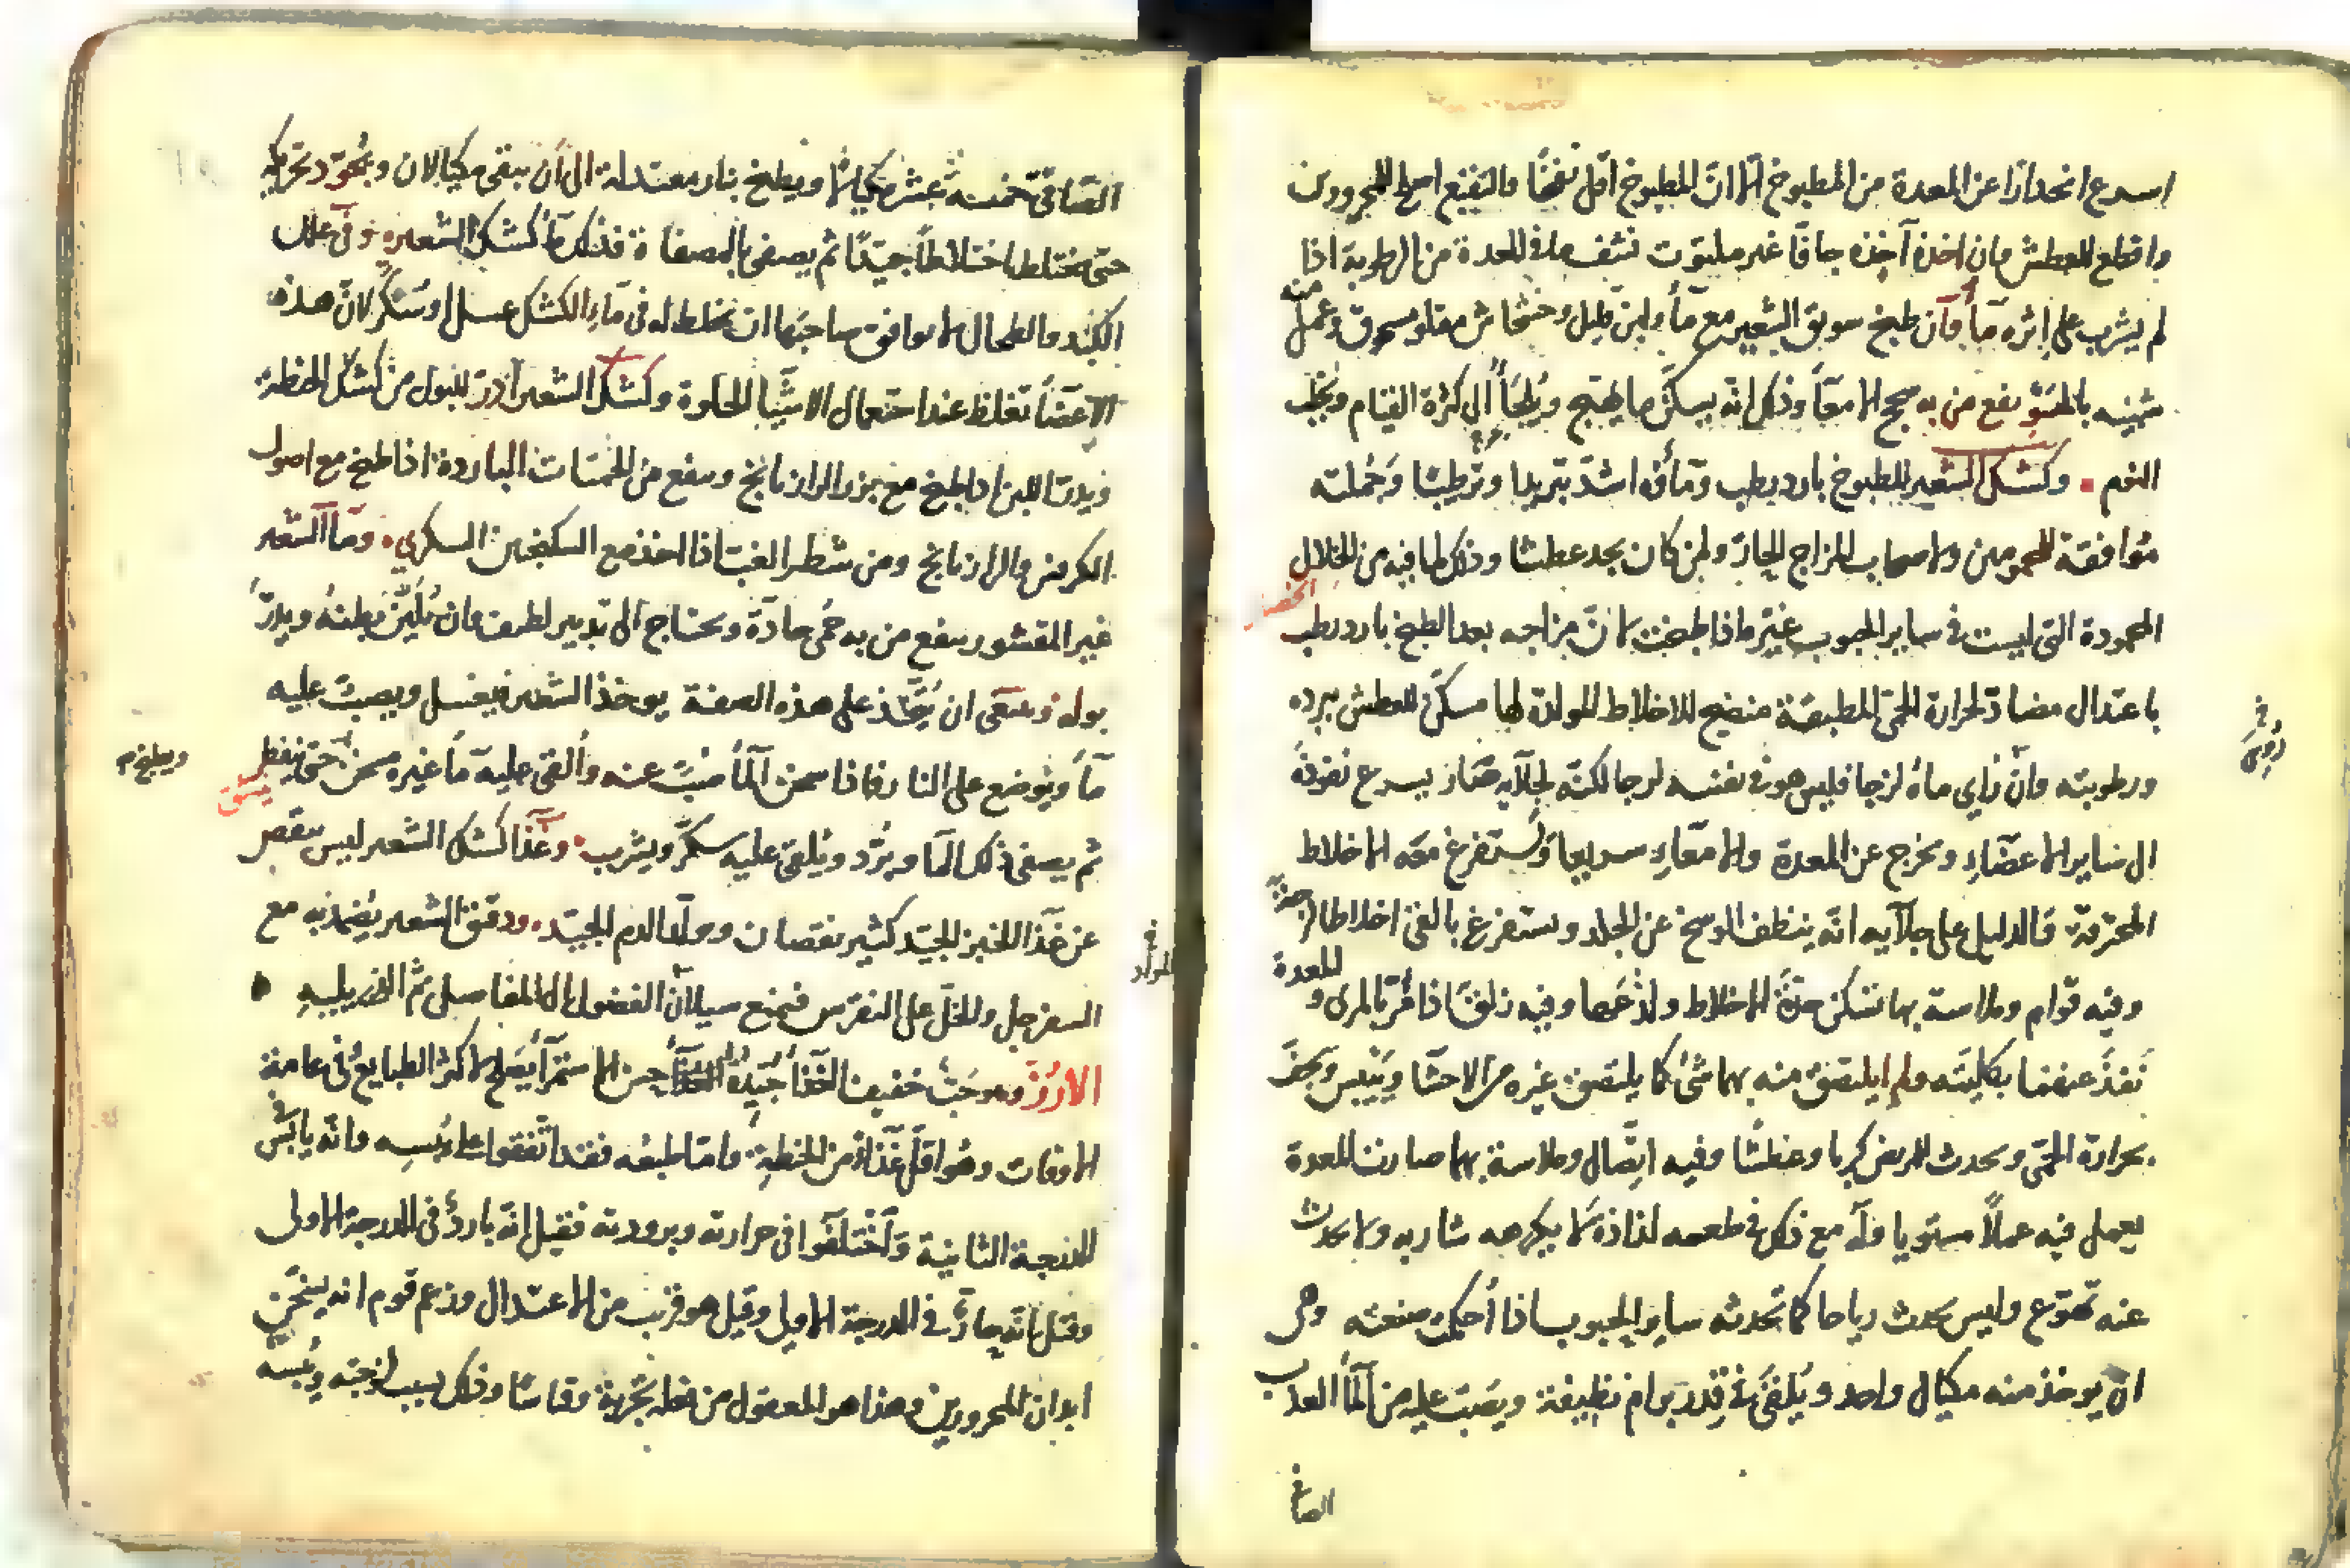 اسرع انحدارا عن المعدة من المطبوخ الا ان المطبوخ اقل نفخا والنقيع اصلح للمحرورين
واقطع للعطش وان اخذه آخذه جافا غير ملتوت نشف ما فى المعدة من الرطوبة اذا
لم يشرب على اثره ماء وان طبخ سويق الشعير مع ماء ولبن قليل وخشخاش مقلو مسحوق وعمل منه
شبيه بالحسو نفع من به سحج الامعاء وذلك انه يسكن ما يهيج ويلجأ الى كثرة القيام ويجلب
النوم . وكشك الشعير المطبوخ بارد رطب وماؤه اشد تبريدا وترطيبا وجملته
موافقة للمحمومين ولاصحاب المزاج الحار ولمن كان يجد عطشا وذلك لما فيه من الخلال
الخصال
المحمودة التى ليست فى ساير الحبوب غيره اذا طبخت لان مزاجه بعد الطبخ بارد رطب
باعتدال مضاد لحرارة الحمى المطبقة منضج للاخلاط المولدة لها مسكن للعطش ببرده
ورطوبته وان راى ماءه لزجا فليس هو فى نفسه لزجا لكنه لجلائه صار يسرع نفوذه
الى ساير الاعضاء ويخرج عن المعدة والامعاء سريعا ويستفرغ معه الاخلاط
المحترقة والدليل على جلائه انه ينظف الوسخ عن الجلد ويستفرغ بالقئ اخلاطا لزجة
وفيه قوام وملاسة بها تسكن حدة الاخلاط ولذعها وفيه زلق اذا مر بالمرى و المعدة
نفذ عنهما بكليته ولم يلتصق منه بهما شئ كما يلتصق غيره من الاحشا وييبس ويجف
بحرارة الحمى ويحدث للمريض كربا وعطشا وفيه اتصال وملاسة بهما صارت المعدة
يعمل فيه عملا مستويا وله مع ذلك فى طعمه لذاذة لا يكرهه شاربه ولا يحدث
عنه تهوع وليس يحدث رياحا كما تحدثه ساير الحبوب اذا أحكمت صنعته وهى
ان يوخذ منه مكيال واحد ويلقى فى قدر برام نظيفة ويصب عليه من الماء العذب
الصافى
الصافى خمسة عشر مكيالا ويطبخ بنار معتدلة الى أن يبقى مكيالان ويجود تحريكه
حتى يختلط اختلاطا جيدا ثم يصفى بالمصفاة فذلك ماء كشك الشعير وفى علل
الكبد والطحال لا يوافق صاحبها ان يخلط له فى ماء الكشك عسل او سكر لان هذه
الاعضا تغلظ عند استعمال الاشيا الحلوة وكشك الشعير أدر للبول من كشك الحنطة
ويدر اللبن اذا طبخ مع بزر الرازيانج وينفع من الحميات الباردة اذا طبخ مع اصول
الكرفس والرازيانج ومن شطر الغب اذا اخذ مع السكنجبين السكرى . وماء الشعير
غير المقشور ينفع من به حمى حادة ويحتاج الى تدبير لطيف وان يلين بطنه ويدر
بوله وينبغى ان يتخذ على هذه الصفة يوخذ الشعير فيغسل ويصب عليه
ماء ويوضع على النار فاذا سخن الماء صب عنه وألقى عليه ماء غيره سخن حتى يتفطر
ويطبخ
ثم يصفى ذلك الماء ويبرد ويلقى عليه سكر ويشرب . وغذا كشك الشعير ليس ينقص
عن غذا الخبز الجيد كثير نقصان ويولد الدم الجيد . ودقيق الشعير يضمد به مع
السفرجل والخل على النقرس فيمنع سيلان الفضول الى المفاصل ثم الذى يليه
الارز وهو حب خفيف الغذا جيد حسن الاستمرا يصلح لاكثر الطبايع فى عامة
الاوقات وهو اقل غذاء من الحنطة . واما طبعه فقد اتفقوا على يبسه وانه يابس
فى الدرجة الثانية واختلفوا فى حرارته وبرودته فقيل انه بارد فى الدرجة الاولى
وقيل انه حار فى الدرجة الاولى وقيل هو قريب من الاعتدال وزعم قوم انه يسخن
ابدان المحرورين وهذا هو المعقول من فعله تجربة وقياسا وذلك بسبب لزوجته ويبسه